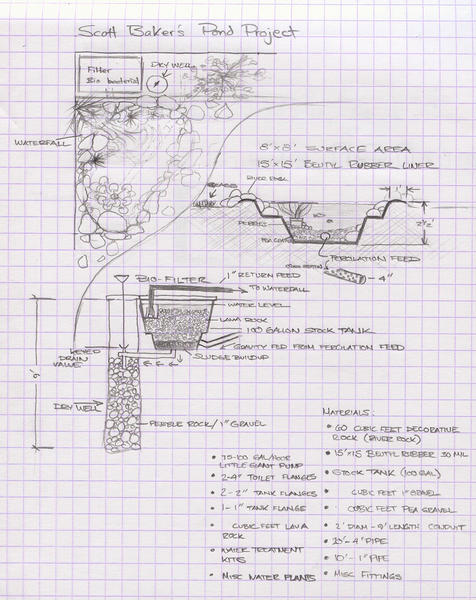 Scott Baker's Pond Project
Filter
Bio bacterial
DRY WELL
WATERFALL
8'x8' SURFACE AREA
15'x15' BEUTYL RUBBER LINER
1'
2½'
PEBBLES
PEA GRAVEL
PERCOLATION FEED
4"
BIO-FILTER
1" RETURN FEED
TO WATERFALL
WATER LEVEL
LAVA ROCK
100 GALLON STOCK TANK
GRAVITY FED FROM PERCOLATION FEED
SLUDGE BUILDUP
KEYED
DRAIN
VALVE
9'
DRY WELL
PEBBLE ROCK/1" GRAVEL
• 75-100 GAL/HOUR
LITTLE GIANT PUMP
• 2-4" TOILET FLANGES
• 2-2" TANK FLANGES
• 1-1" TANK FLANGE
• CUBIC FEET LAVA
ROCK
• WATER TREATMENT
KITS
• MISC WATER PLANTS
MATERIALS:
• 60 CUBIC FEET DECORATIVE
ROCK (RIVER ROCK)
• 15'x15' BEUTYL RUBBER 30 MIL
• STOCK TANK (100 GAL)
• CUBIC FEET 1" GRAVEL
• CUBIC FEET PEA GRAVEL
• 2' DIAM - 9' LENGTH CONDUIT
• 20'-4" PIPE
• 10'-1" PIPE
• MISC FITTINGS